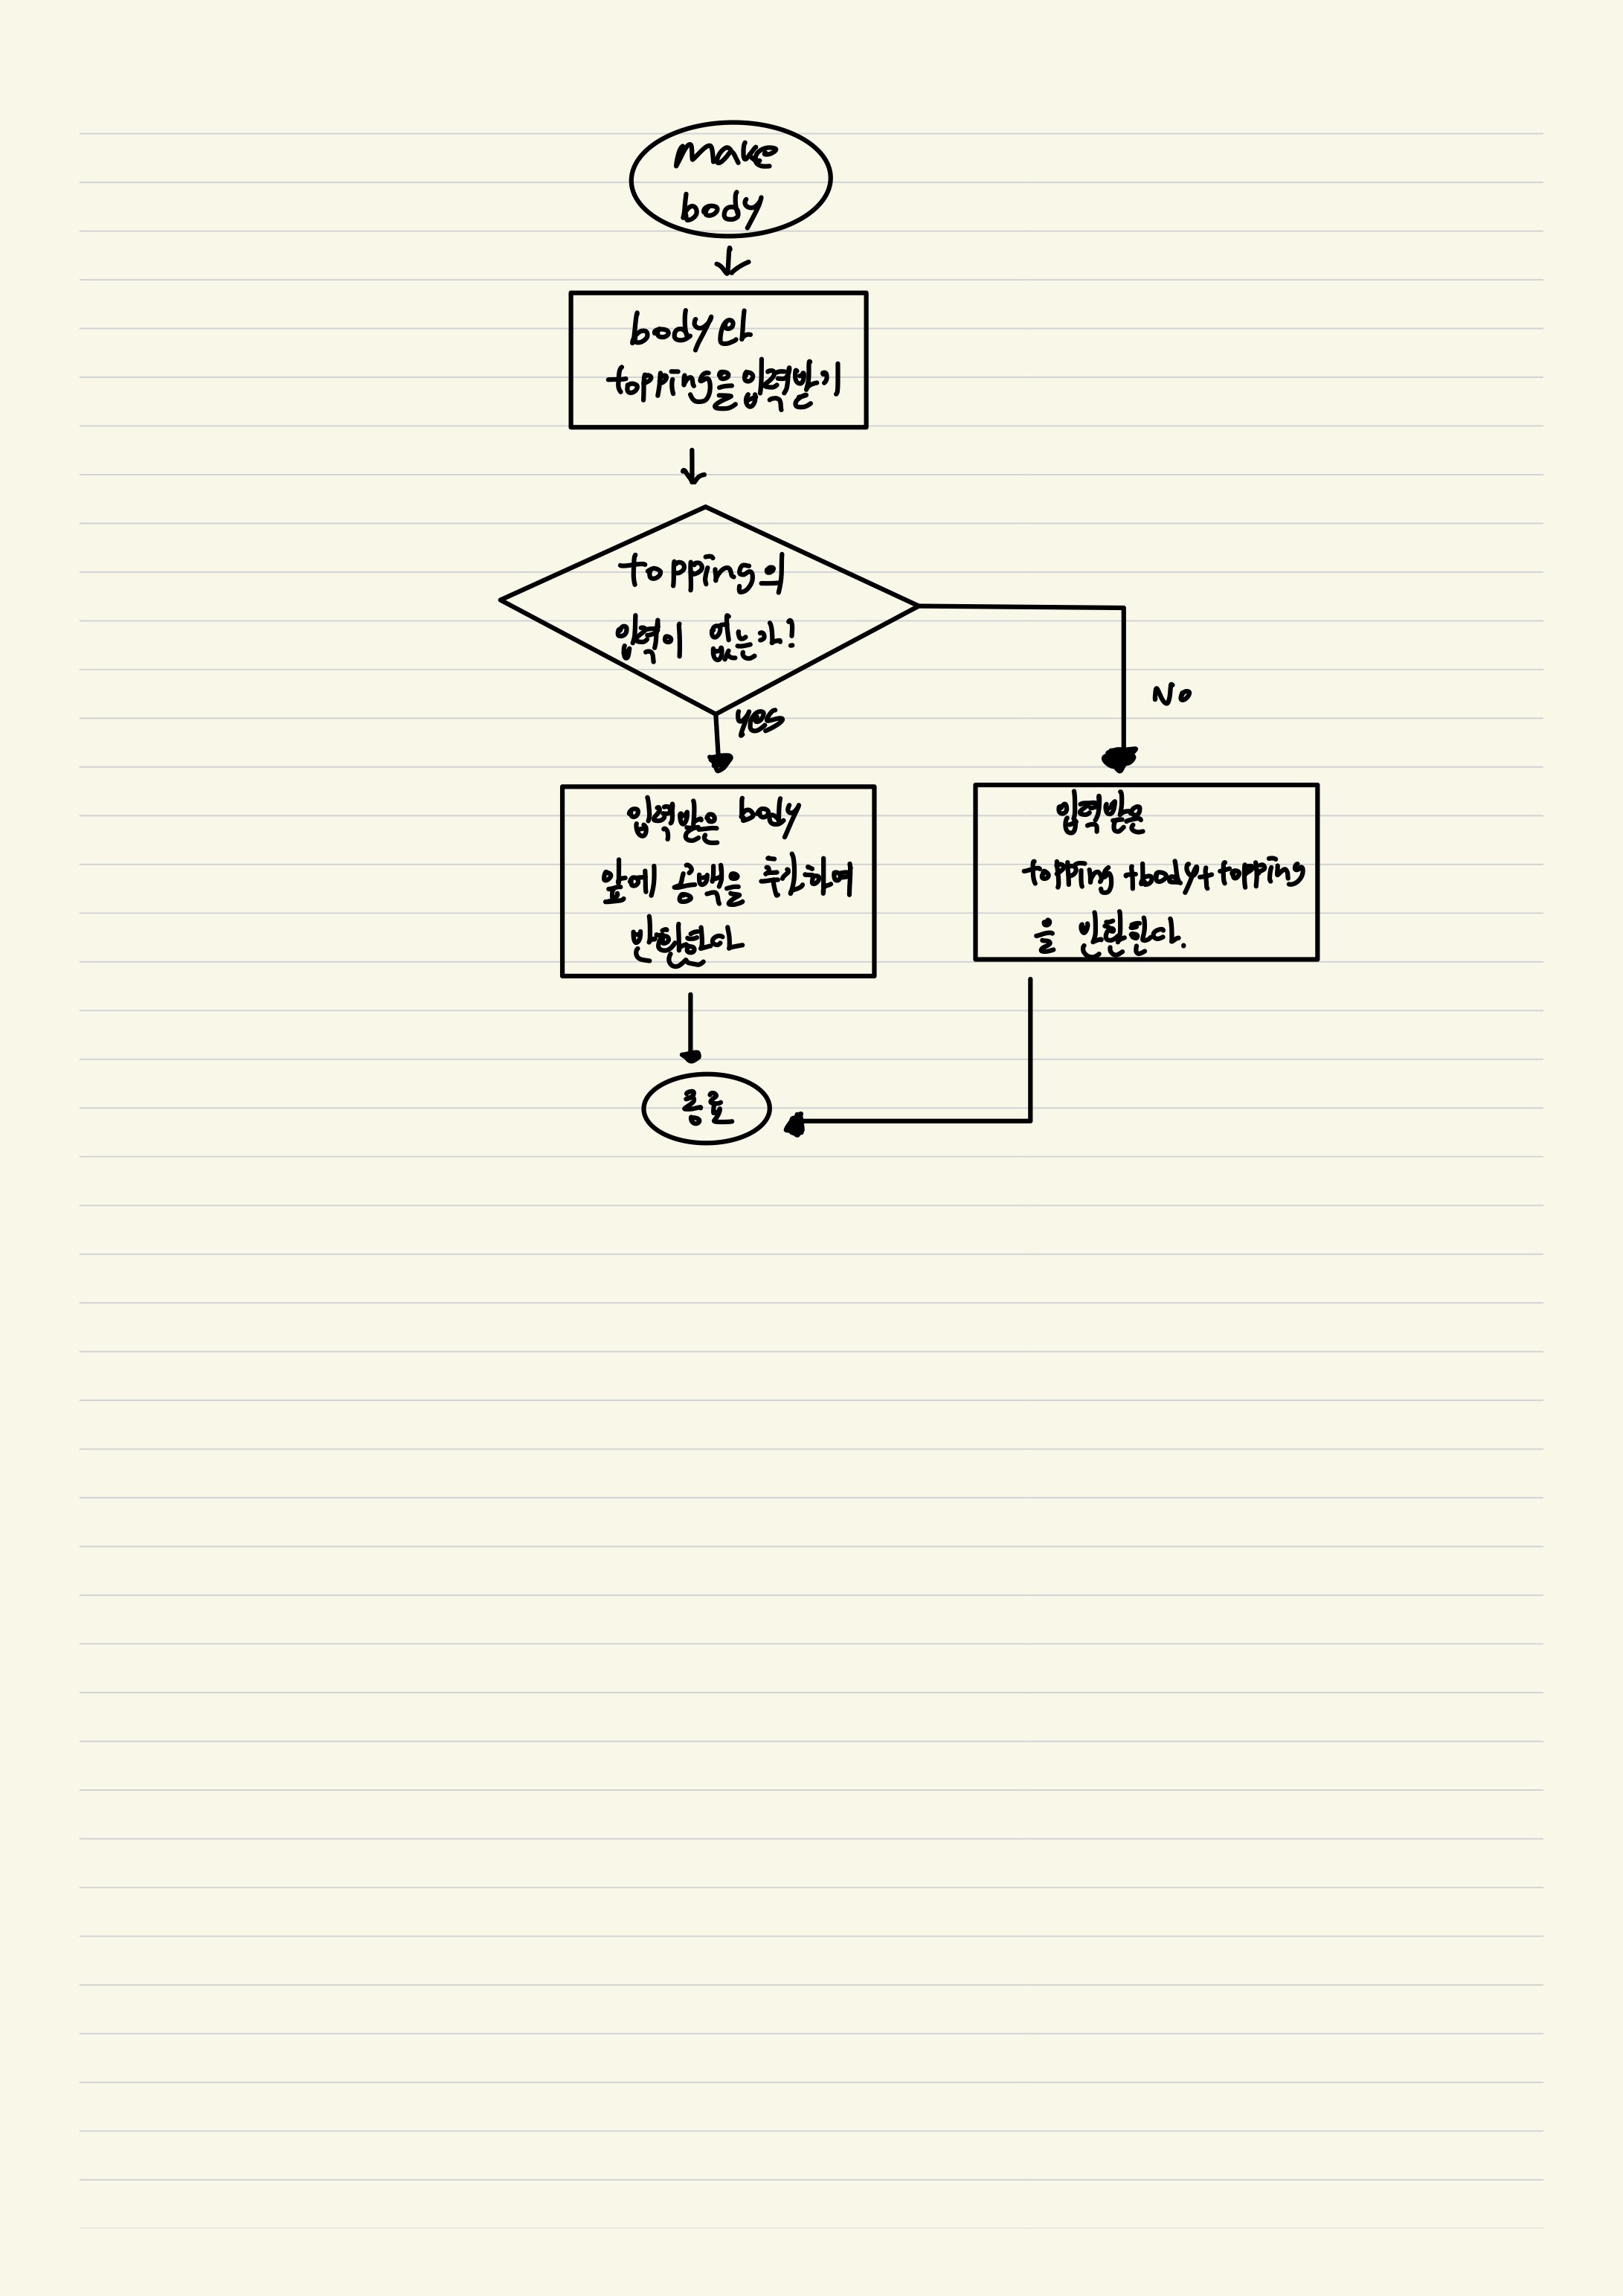 make
body
body와
topping을 입력받기
topping의
입력이 없는가?
yes
No
입력받은 body
앞에 공백을 추가하여
반환한다
입력받은
topping+body+topping
을 반환한다.
종료